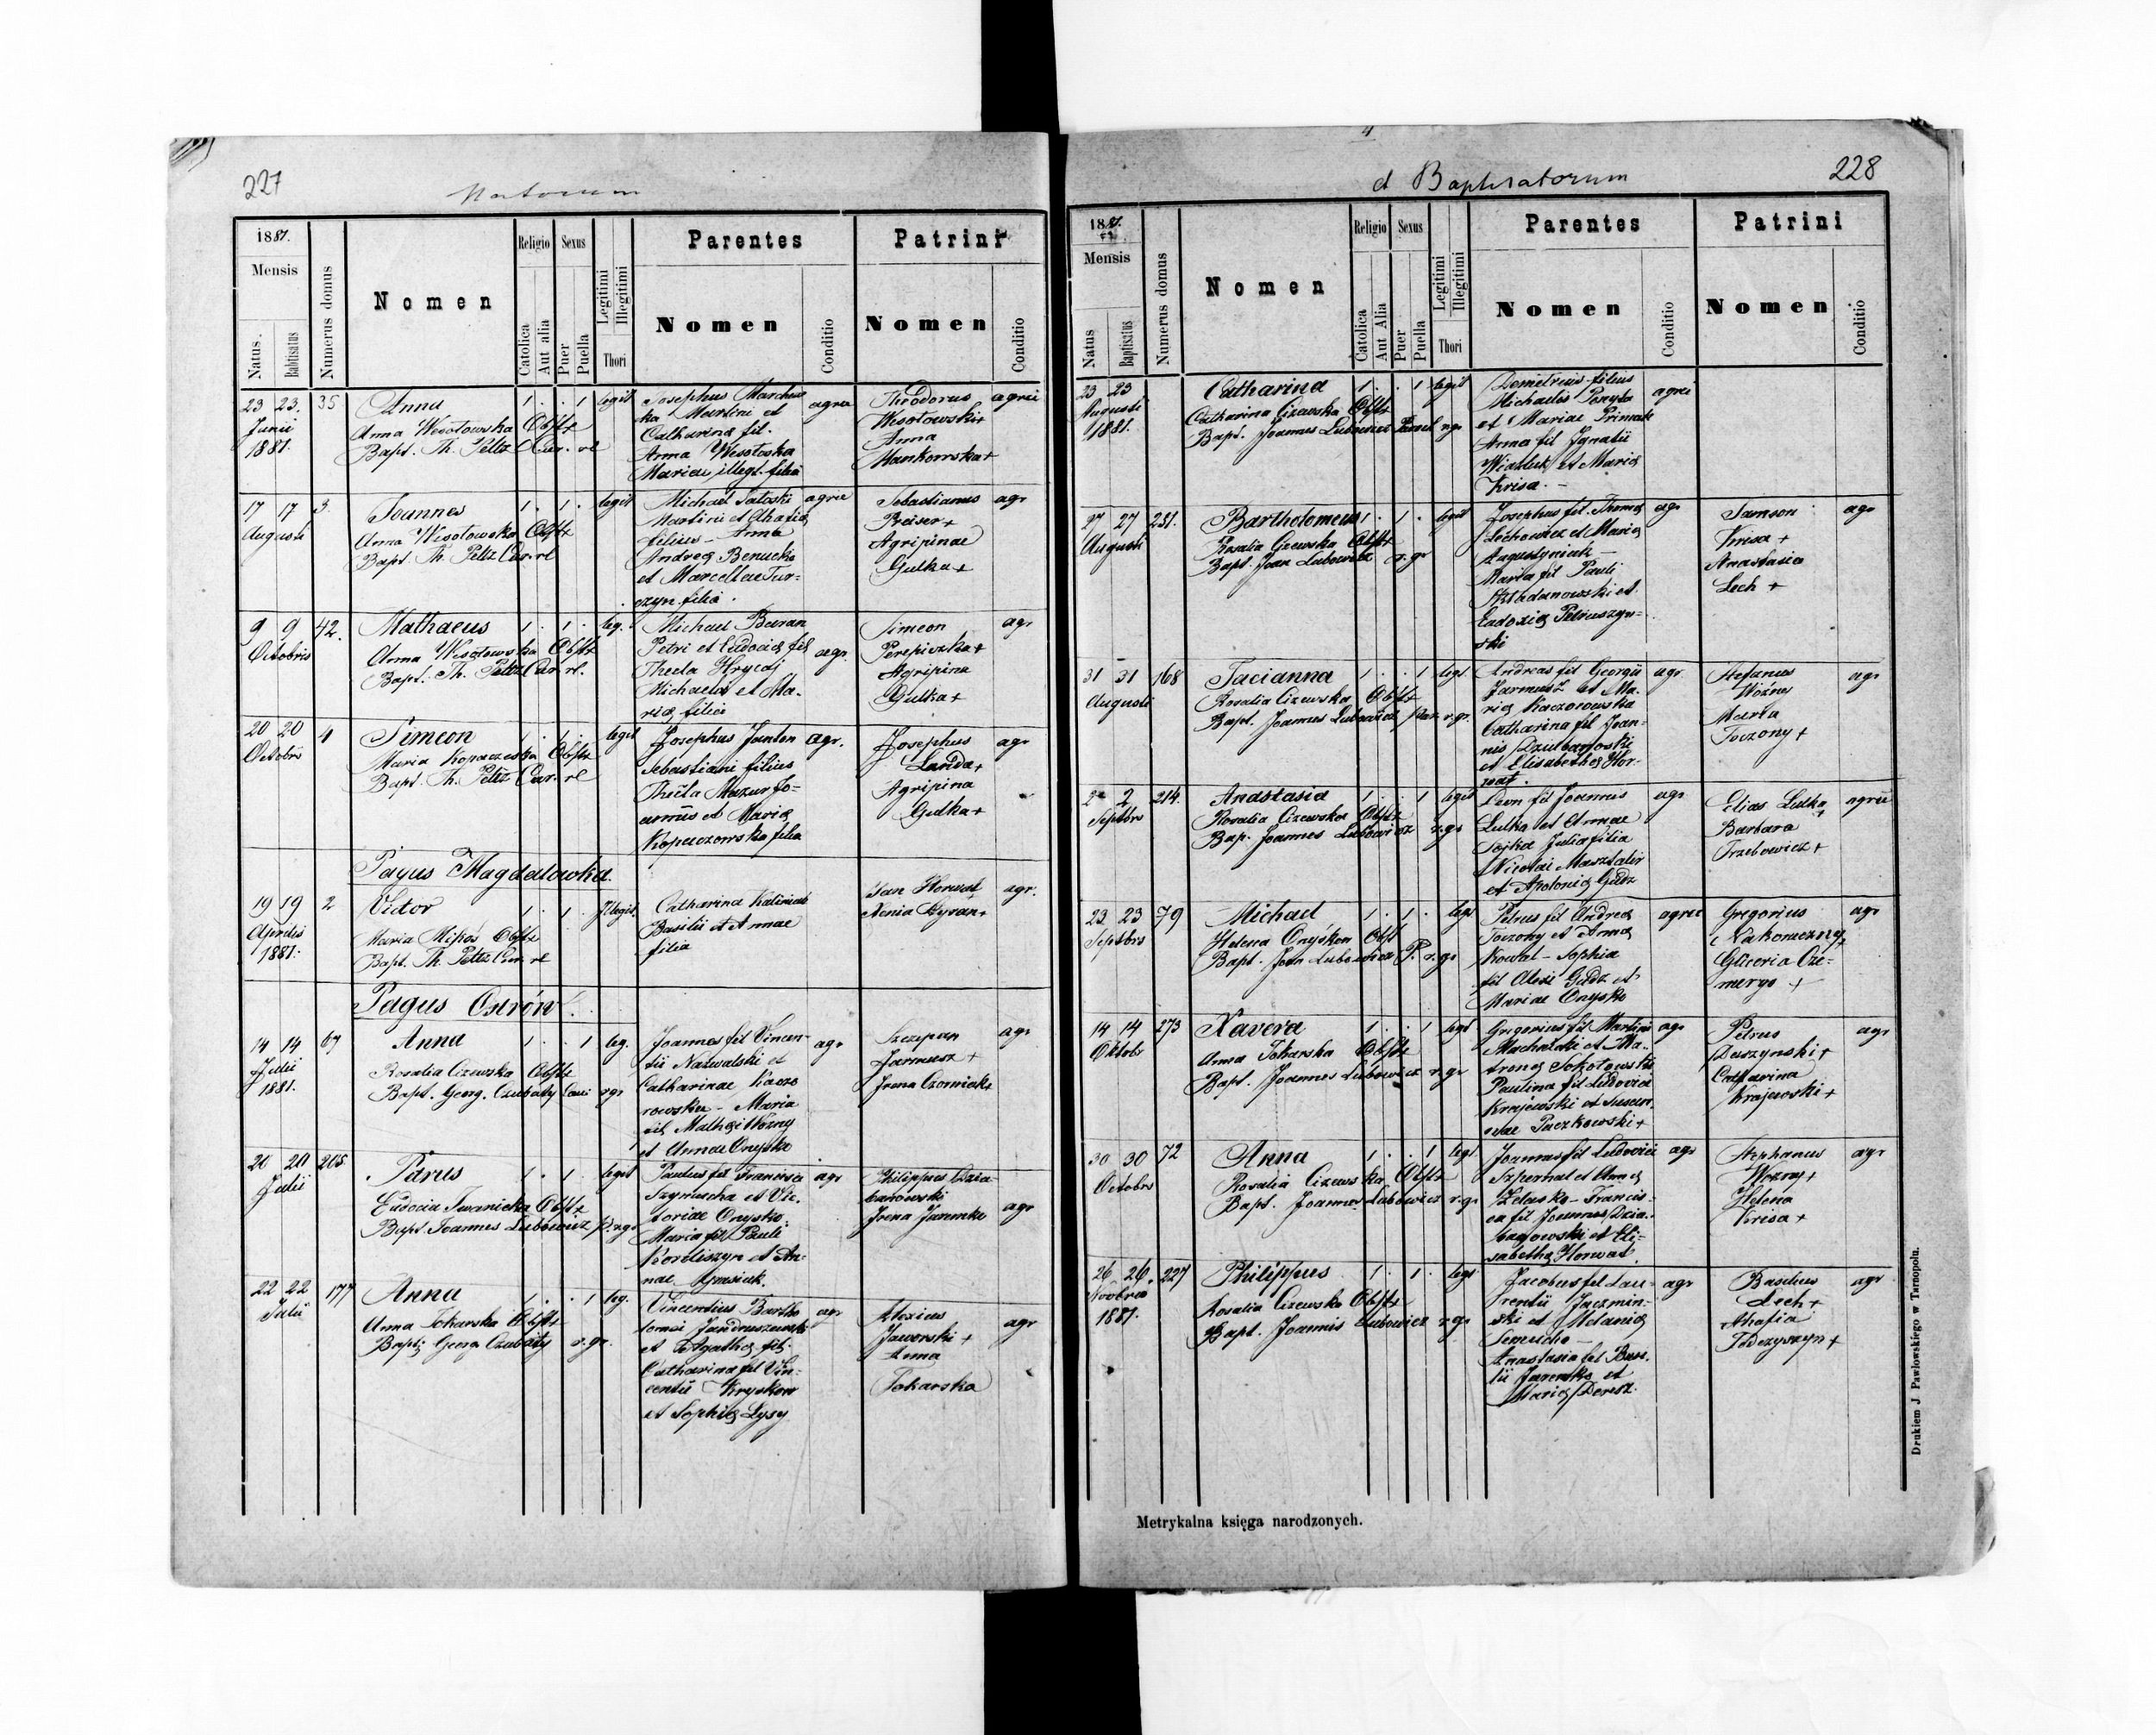 227
Natorum
1881.
Mensis
Natus.
Babtisatus
Numerus domus
Nomen
Religio
Catolica
Aut alia
Sexus
Puer
Puella
Legitimi
Illegitimi
Thori
Parentes
Nomen
Conditio
Patrini
Nomen
Conditio
23 23. 35
Junii
1881.
Anna
Anna Wesołowska Obstx
Bapt. Th. Peltz Cur. rl
1 . . 1 legit
Josephus
ka Martini et
Catharina fil.
Anna Wesołoska
Mariae illegt. filia
agre
Theodorus
Wesołowski+
Anna
Mankowska+
agrii
17 17 3.
Augusti
Joannes
Anna Wesołowska Obstx
Bapt. Th. Peltz Cur. rl
1 . 1 . legit
Michael
Martini et
filius - Anna
Andreą Benucki
et Marcellae Tur-
czyn filia.
agre
Sebastianus
Preiser+
Agripinae
Gulka+
agr
9 9 42.
Octobris
Mathaeus
Anna Wesołowska Obstx
Bapt. Th. Peltz Cur rl.
1 . 1 . leg.
Michael Baran
Petri et Eudocią fil
Thecla Hrycaj
Michaelis et Ma-
rią filia
agr.
Simeon
Perepiczka+
Agripina
Gulka+
agr
20 20 4
Octobr
Simeon
Maria Kopaczeska Obstx
Bapt. Th. Peltz Cur. rl
1 . 1 . legit
Josephus Janton
Sebastiani filius
Thecla Mazur Jo-
annis et Marią
Kopaczowska filia
agr.
Josephus
Landa+
Agripina
Gulka+
agr
Pagus Magdalowka.
19 19 2
Aprilis
1881.
Victor
Maria Mikos Obstx
Bapt. Th. Peltz Cur. rl
1 . 1 . Illegit.
Catharina Kaliniak
Basilii et Annae
filia
Jan Horwat
Xenia Hyran+
agr.
Pagus Ostrów.
14 14 67
Julii
1881.
Anna
Rosalia Cizewska Obstx
Bapt. Georg. Czubaty r.gr
1 . . 1 leg.
Joannes fil Vincen-
tii Nazwalski et
Catharinae Kaczo
rowska - Maria
fil Mathei Wozny
et Annae Onyska
agr
Szczepan
Jarmusz +
Irena Czorniak+
agr
20 20 205.
Julii
Petrus
Eudocia Iwanicka Obstx
Bapt. Joannes Lubowicz p. r.gr
1 . 1 . legit
Paulus fil Francisci
Szymucha et Vic-
toriae Onysko.
Maria fil Pauli
Koroliszyn et An-
nae
agr
Philippus Dzia-
banowski
Irena Jaremko
agr
22 22 177
Julii
Anna
Anna Tokarska Obstx
Bapt. Georg Czubaty r.gr.
1 . . 1 leg.
Vincentius Bartho
lomei Jandruszewski
et Agathą fil.
Catharina fil Vin-
centii Kryskow
et Sophią Lysy
agr
Alexius
Jaworski +
Anna
Tokarska
agr
228
et Baptisatorum
1881.
Mensis
Natus
Baptisatus
Numerus domus
Nomen
Religio
Catolica
Aut Alia
Sexus
Puer
Puella
Legitimi
Illegitimi
Thori
Parentes
Nomen
Conditio
Patrini
Nomen
Conditio
23 23
Augusti
1881.
Catharina
Catharina Cizewska Obstx
Bapt. Joannes Lubowicz r.gr
1 . . 1 legit
Demetrius filius
Michaelis
et Mariae
Anna fil Ignatii
et Marią
Krisa. -
agri
27 27 231.
Augusti
Bartholomeus
Rosalia Czewska Obstx
Bapt. Joan Lubowicz r.gr
1 . 1 . legit
Josephus fil. Thomą
Lechowicz et Marią
Augustyniak -
Maria fil Pauli
et
Eudoxią Petruszyn-
ski
agr
Samson
Krisa +
Anastasia
Lech +
agr
31 31 168
Augusti
Tacianna
Rosalia Cizewska Obstx
Bapt. Joannes Lubowicz r.gr.
1 . . 1 legt
Andreas fil Georgii
Jarmusz et Ma-
rią Kaczorowska
Catharina fil Joan-
nis Dziubanowski
et Elisabethą Hor-
wat.
agr
Stefanus
Wozny
Maria
Toczony+
agr
2 2 214.
Septbrs
Anastasia
Rosalia Cizewska Obstx
Bap. Joannes Lubowicz r.gr
1 . . 1 legit
Leon fil Joannis
Lulka et Annae
Sojka Julia filia
Nicolai Masztalir
et Apolonią Gudz
agr
Elias Lulka
Barbara
Trzebowicz+
agrii
23 23 79
Septbrs
Michael
Helena Onyskow Obst
Bapt. Joan Lubowicz P. r.gr
1 . 1 . legt
Petrus fil Andreą
Toczony et Anną
Kowal - Sophia
fil Alexi Gudz et
Mariae Onysko
agri
Gregorius
Nakoneczny
Gliceria Cze-
merys +
agr
14 14 273
Oktobr
Xavera
Anna Tokarska Obstx
Bapt. Joannes Lubowicz r.gr
1 . . 1 legt
Gregorius fil Martini
Machalski et Ma-
troną Sokołowski
Paulina fil Ludovici
Krajewski et Susan-
nae Paczkowski+
agr
Petrus
Duszynski+
Catharina
Krajewski+
agr
30 30 72
Octobrs
Anna
Rosalia Cizewska Obstx
Bapt. Joannes Lubowicz r.gr
1 . . 1 legt
Joannes fil Ludovici
Szpernal et Anną
Żelasko - Francis-
ca fil Joannes Dzia-
banowski et Eli-
sabethą Horwat.
agr
Stephanus
Wozny+
Helena
Krisa+
agr
26 26. 227
Novbris
1881.
Philippus
Rosalia Cizewska Obstx
Bapt. Joannis Lubowicz r.gr
1 . 1 . legt
Jacobus fil Lau-
rentii Jaczmin-
ski et Melanią
Semucha -
Anastasia fil Basi-
lii Jaremko et
Marią Deresz.
agr
Basilius
Lech+
Ahafia
agr
Metrykalna księga narodzonych.
Drukiem J Pawłowskiego w Tarnopolu.